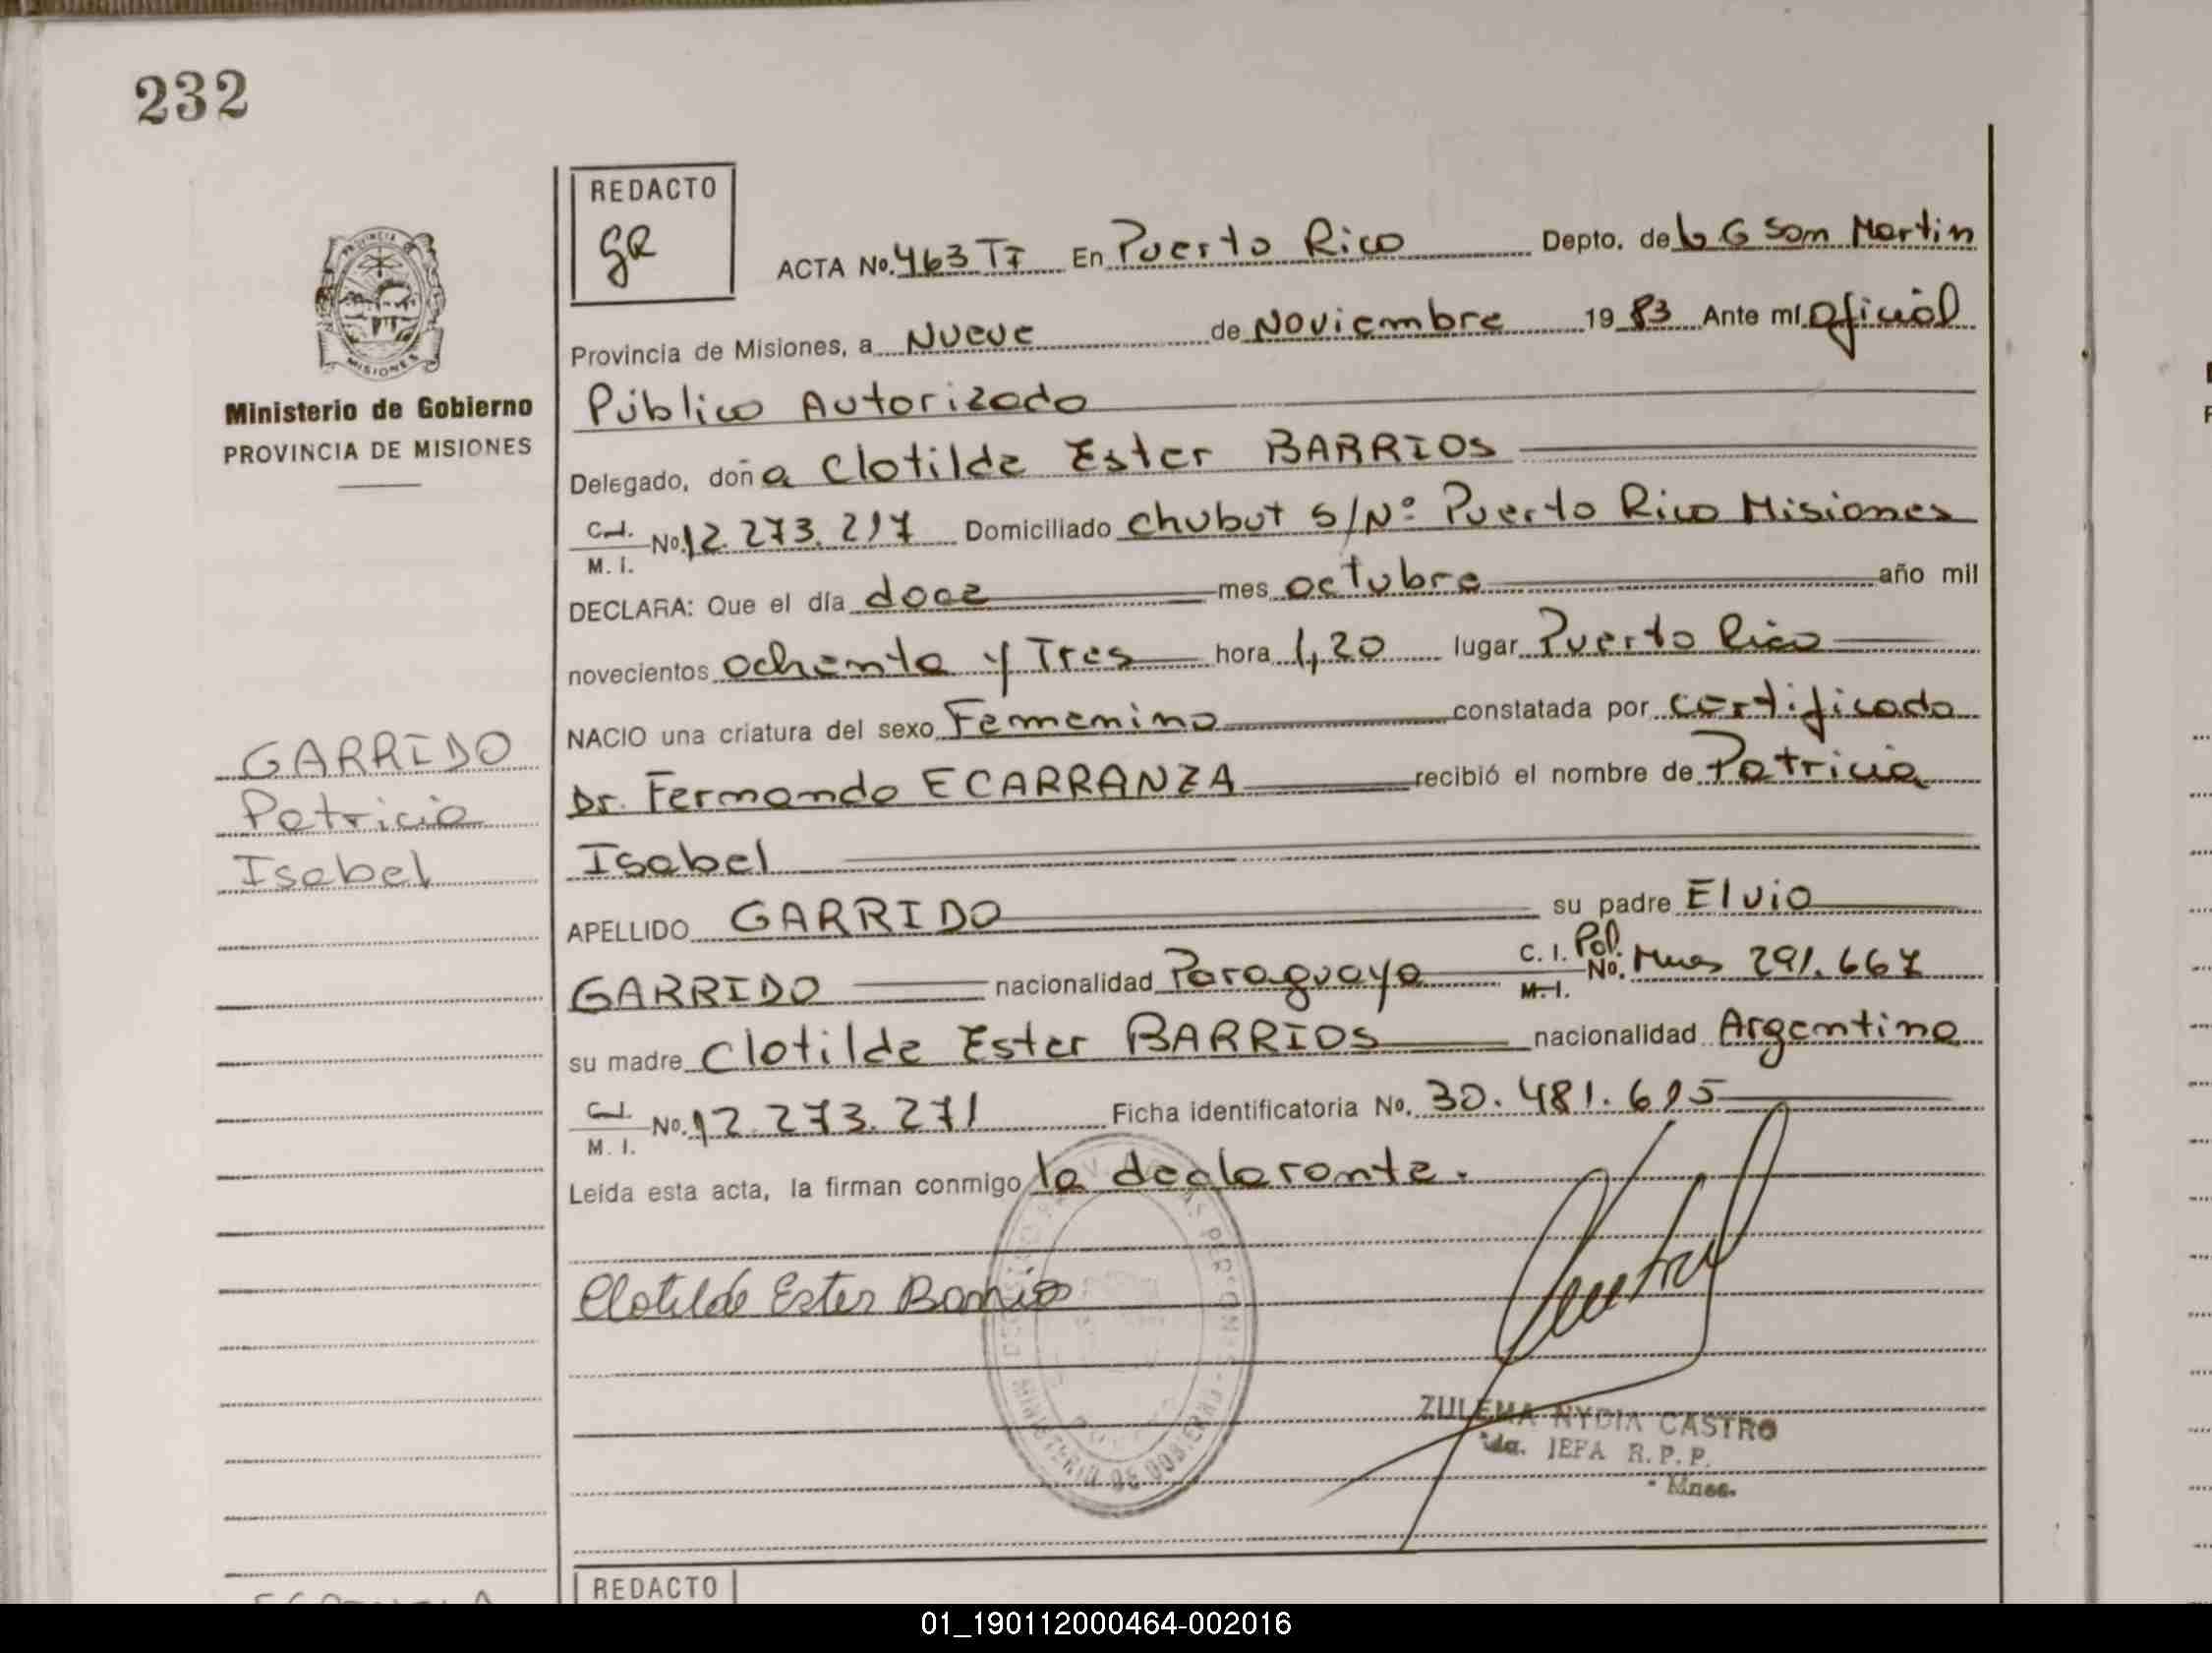 232
REDACTO
GR
ACTA No. 463 T7 En Puerto Rico Depto. de L G San Martin
Provincia de Misiones, a Nueve de Noviembre 1983 Ante mí Oficial
Público Autorizado
Ministerio de Gobierno
PROVINCIA DE MISIONES
Delegado, doña Clotilde Ester BARRIOS
C.I. M. I. No. 12.273.217 Domiciliado Chubut S/Nº Puerto Rico Misiones
DECLARA: Que el día doce mes octubre año mil
novecientos ochenta y Tres hora 1,20 lugar Puerto Rico
NACIO una criatura del sexo Femenino constatada por certificado
Dr. Fernando ECARRANZA recibió el nombre de Patricia
Isabel
GARRIDO
Patricia
Isabel
APELLIDO GARRIDO su padre Elvio
GARRIDO nacionalidad Paraguaya C. I. M. I. Pol. No. Mnes 291.667
su madre Clotilde Ester BARRIOS nacionalidad Argentina
C.I. M. I. No. 12.273.271 Ficha identificatoria No. 30.481.615
Leída esta acta, la firman conmigo la declarante.
Clotilde Ester Barrios
ZULEMA NYDIA CASTRO
JEFA R. P. P.
Mnes.
MINISTERIO DE GOBIERNO
REDACTO
01_190112000464-002016